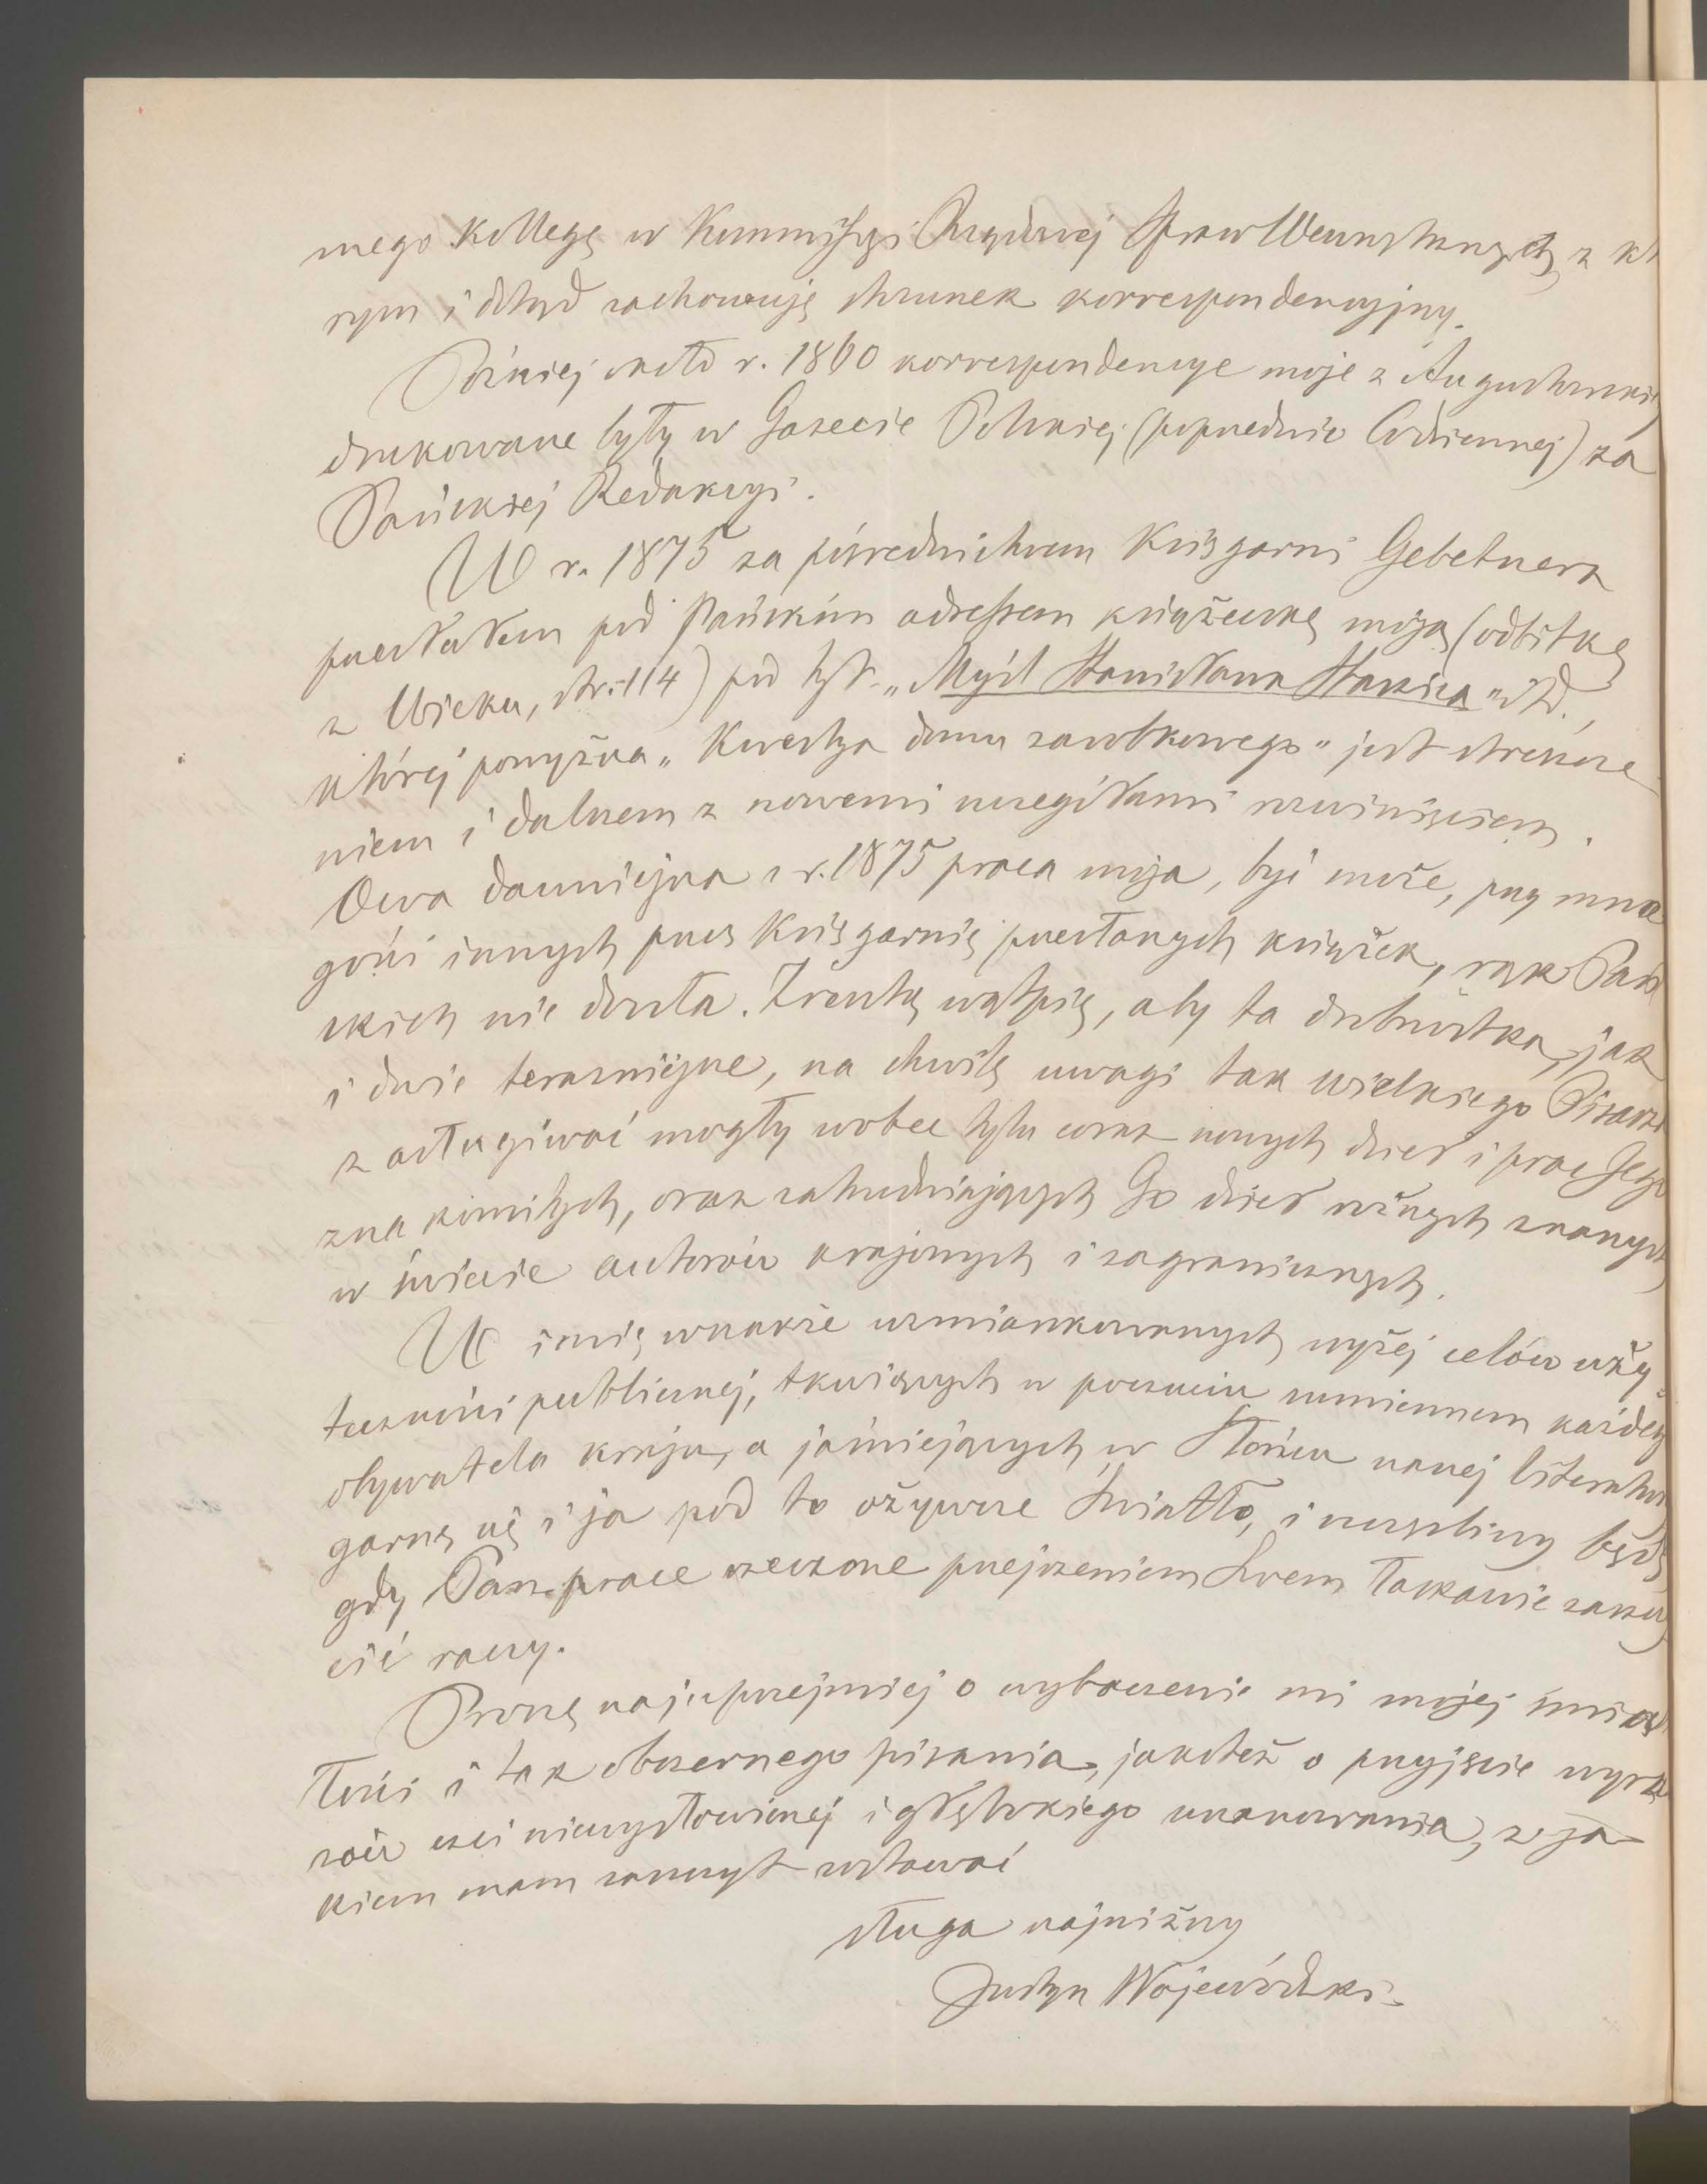 mego kollegę w Kommissyi Rządowej Spraw Wewnętrznych, z któ
rym i dotąd zachowuję stosunek korrespondencyjny.
Później około r. 1860 korrespondencye moje z Augustowskiej
drukowane były w Gazecie Polskiej (poprzednio Codziennej) za
Pańskiej Redakcyi.
W r. 1875 za pośrednictwem Księgarni Gebethnera
przesłałem pod Pańskim adressem książeczkę moją (odbitkę
z Wieku, str. 114) pod tyt. „Myśl Stanisława Staszica" itd.,
której powyższa „Kwestya domu zarobkowego" jest streszcze
niem i dalszem z nowemi szczegółami rozwinięciem.
Owa dawniejsza z r. 1875 praca moja, być może, przy mno
gości innych przez Księgarnię przesłanych książek, rąk Pań
skich nie doszła. Zresztą wątpię, aby ta drobnostka, jak
i dwie teraźniejsze, na chwilę uwagi tak wielkiego Pisarza
zasługiwać mogły wobec tylu coraz nowych dzieł i prac Jego
znakomitych, oraz zatrudniających Go dzieł różnych znanych
w świecie autorów krajowych i zagranicznych.
W imię wszakże wzmiankowanych wyżej celów uży-
teczności publicznej, tkwiących w poczuciu sumiennem każdego
obywatela kraju, a jaśniejących w Słońcu naszej literatury
garnę się i ja pod to ożywcze Światło, i szczęśliwy będę,
gdy Pan prace rzeczone przejrzeniem Swem łaskawie zaszczy
cić raczy.
Proszę najuprzejmiej o wybaczenie mi mojej śmia
łości i tak obszernego pisania, jakoteż o przyjęcie wyra
zów czci niewysłowionej i głębokiego uszanowania, z ja-
kiem mam zaszczyt zostawać
sługa najniższy
Justyn Wojewódzki.